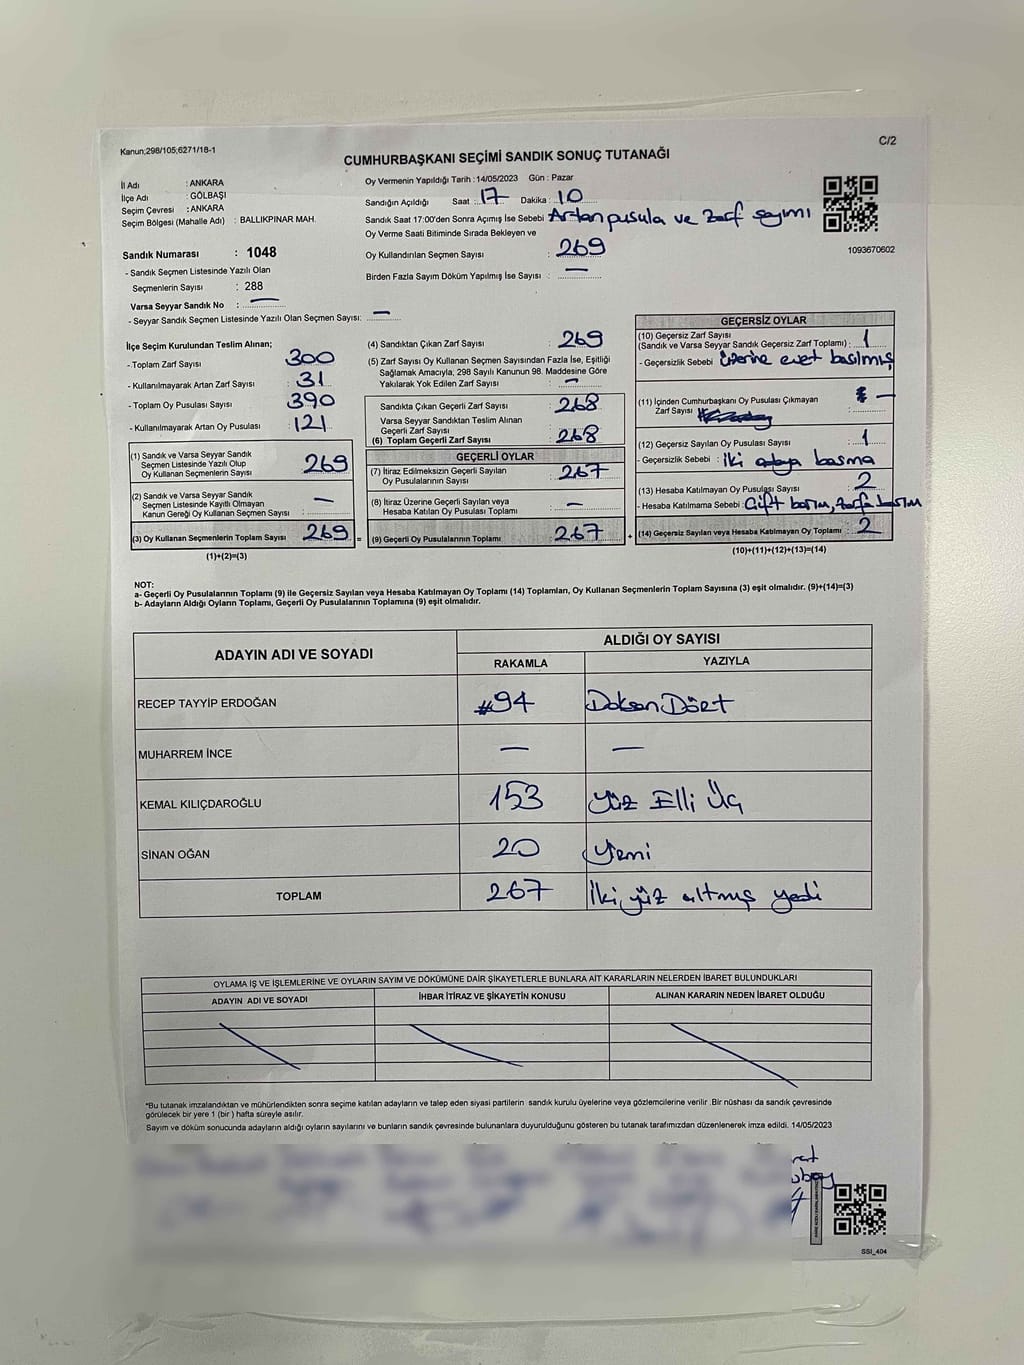 Kanun;298/105;6271/18-1
C/2
CUMHURBAŞKANI SEÇİMİ SANDIK SONUÇ TUTANAĞI
İl Adı : ANKARA
İlçe Adı : GÖLBAŞI
Seçim Çevresi : ANKARA
Seçim Bölgesi (Mahalle Adı) : BALLIKPINAR MAH.
Oy Vermenin Yapıldığı Tarih : 14/05/2023 Gün : Pazar
Sandığın Açıldığı Saat : 17 Dakika : 10
Sandık Saat 17:00'den Sonra Açımış İse Sebebi : Artan pusula ve zarf sayımı
Oy Verme Saati Bitiminde Sırada Bekleyen ve
Oy Kullandırılan Seçmen Sayısı : 269
Birden Fazla Sayım Döküm Yapılmış İse Sayısı : —
1093670602
Sandık Numarası : 1048
- Sandık Seçmen Listesinde Yazılı Olan
Seçmenlerin Sayısı : 288
Varsa Seyyar Sandık No : —
- Seyyar Sandık Seçmen Listesinde Yazılı Olan Seçmen Sayısı: —
İlçe Seçim Kurulundan Teslim Alınan;
- Toplam Zarf Sayısı : 300
- Kullanılmayarak Artan Zarf Sayısı : 31
- Toplam Oy Pusulası Sayısı : 390
- Kullanılmayarak Artan Oy Pusulası : 121
(1) Sandık ve Varsa Seyyar Sandık
Seçmen Listesinde Yazılı Olup
Oy Kullanan Seçmenlerin Sayısı 269
(2) Sandık ve Varsa Seyyar Sandık
Seçmen Listesinde Kayıtlı Olmayan
Kanun Gereği Oy Kullanan Seçmen Sayısı : —
(3) Oy Kullanan Seçmenlerin Toplam Sayısı 269 =
(1)+(2)=(3)
(4) Sandıktan Çıkan Zarf Sayısı : 269
(5) Zarf Sayısı Oy Kullanan Seçmen Sayısından Fazla İse, Eşitliği
Sağlamak Amacıyla, 298 Sayılı Kanunun 98. Maddesine Göre
Yakılarak Yok Edilen Zarf Sayısı : —
Sandıkta Çıkan Geçerli Zarf Sayısı : 268
Varsa Seyyar Sandıktan Teslim Alınan
Geçerli Zarf Sayısı
(6) Toplam Geçerli Zarf Sayısı : 268
GEÇERLİ OYLAR
(7) İtiraz Edilmeksizin Geçerli Sayılan
Oy Pusulasının Sayısı : 267
(8) İtiraz Üzerine Geçerli Sayılan veya
Hesaba Katılan Oy Pusulası Toplamı : —
(9) Geçerli Oy Pusulalarının Toplamı : 267 +
GEÇERSİZ OYLAR
(10) Geçersiz Zarf Sayısı
(Sandık ve Varsa Seyyar Sandık Geçersiz Zarf Toplamı) : 1
- Geçersizlik Sebebi : Üzerine evet basılmış
(11) İçinden Cumhurbaşkanı Oy Pusulası Çıkmayan
Zarf Sayısı : —
(12) Geçersiz Sayılan Oy Pusulası Sayısı : 1
- Geçersizlik Sebebi : İki adaya basma
(13) Hesaba Katılmayan Oy Pusulası Sayısı : 2
- Hesaba Katılmama Sebebi : Çift basım, zarfa basım
(14) Geçersiz Sayılan veya Hesaba Katılmayan Oy Toplamı : 2
(10)+(11)+(12)+(13)=(14)
NOT:
a- Geçerli Oy Pusulalarının Toplamı (9) ile Geçersiz Sayılan veya Hesaba Katılmayan Oy Toplamı (14) Toplamları, Oy Kullanan Seçmenlerin Toplam Sayısına (3) eşit olmalıdır. (9)+(14)=(3)
b- Adayların Aldığı Oyların Toplamı, Geçerli Oy Pusulalarının Toplamına (9) eşit olmalıdır.
ADAYIN ADI VE SOYADI ALDIĞI OY SAYISI
RAKAMLA YAZIYLA
RECEP TAYYİP ERDOĞAN #94 Doksan Dört
MUHARREM İNCE — —
KEMAL KILIÇDAROĞLU 153 Yüz Elli Üç
SİNAN OĞAN 20 Yirmi
TOPLAM 267 İki yüz altmış yedi
OYLAMA İŞ VE İŞLEMLERİNE VE OYLARIN SAYIM VE DÖKÜMÜNE DAİR ŞİKAYETLERLE BUNLARA AİT KARARLARIN NELERDEN İBARET BULUNDUKLARI
ADAYIN ADI VE SOYADI İHBAR İTİRAZ VE ŞİKAYETİN KONUSU ALINAN KARARIN NEDEN İBARET OLDUĞU
*Bu tutanak imzalandıktan ve mühürlendikten sonra seçime katılan adayların ve talep eden siyasi partilerin sandık kurulu üyelerine veya gözlemcilerine verilir .Bir nüshası da sandık çevresinde
görülecek bir yere 1 (bir ) hafta süreyle asılır.
Sayım ve döküm sonucunda adayların aldığı oyların sayılarını ve bunların sandık çevresinde bulunanlara duyurulduğunu gösteren bu tutanak tarafımızdan düzenlenerek imza edildi. 14/05/2023
SSI_404